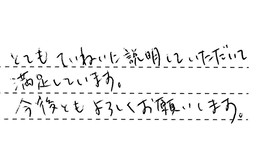 とてもていねいに説明していただいて
満足しています。
今後ともよろしくお願いします。